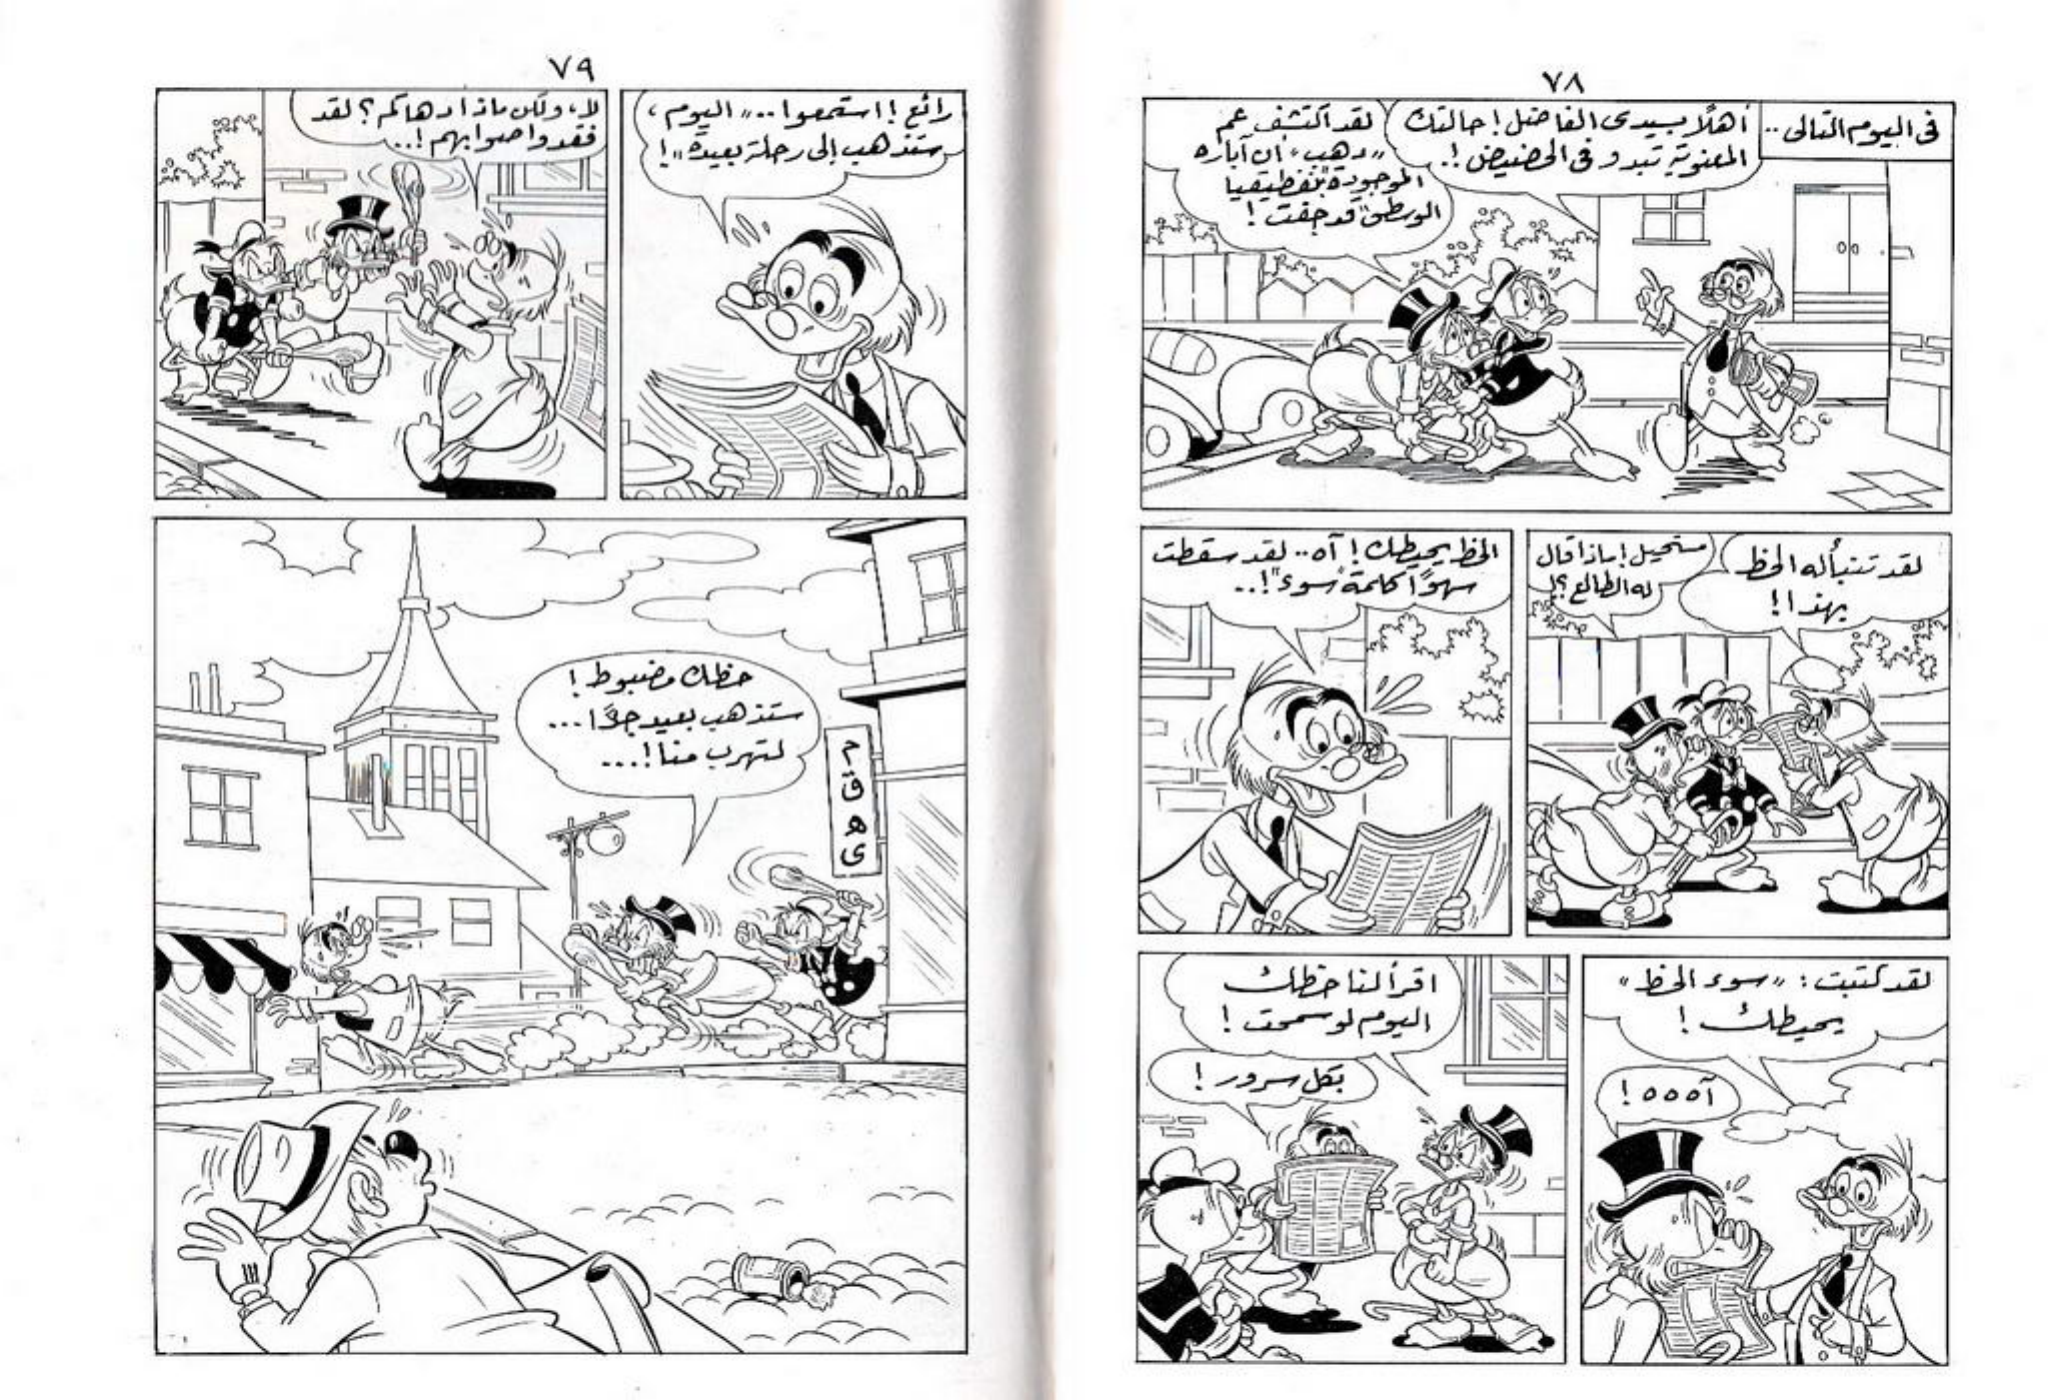 ٧٨
فى اليوم التالى ..
أهلًا بسيدى الفاضل! حالتك
المعنوية تبدو فى الحضيض!.
لقد اكتشف عم
"دهب" أن آباره
الموجودة بنفطيقيا
الوسطى قد جفت!
لقد تنبأ له الحظ
بهذا!
مستحيل! ماذا قال
له الطالع؟!
الحظ يحيطك! آه.. لقد سقطت
سهوًا كلمة "سوء"!..
لقد كتبت: "سوء الحظ"
يحيطك!
آههه!
اقرأ لنا حظك
اليوم لو سمحت!
بكل سرور!
٧٩
رائع! استمعوا.. "اليوم،
ستذهب إلى رحلة بعيدة"!
لا، ولكن ماذا دهاكم؟ لقد
فقدوا صوابهم!..
حظك مضبوط!
ستذهب بعيد جدًا...
لتهرب منا!...
م
ق
ه
ى